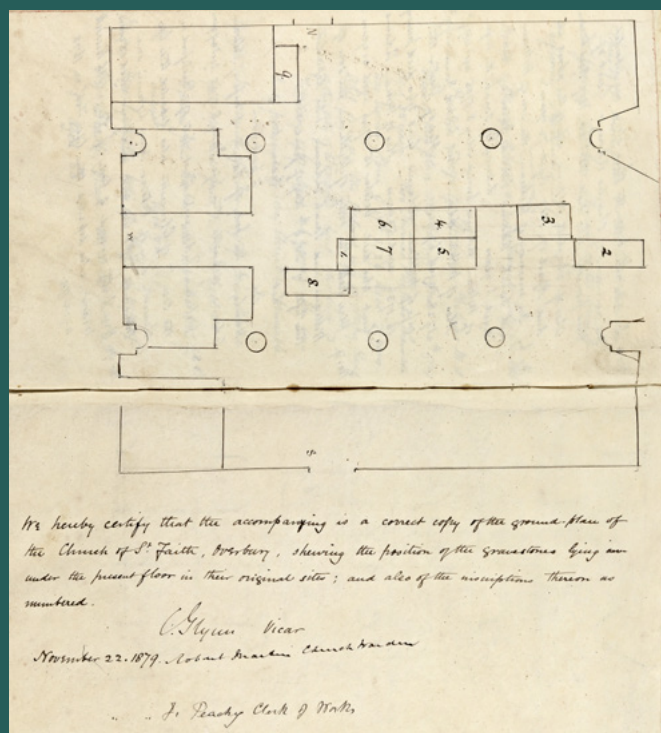 N
9.
3.
6.
4.
W
1.
7
5.
2.
8.
We hereby certify that the accompanying is a correct copy of the ground-plan of
the Church of St. Faith, Overbury, shewing the position of the gravestones lying
under the present floor in their original sites; and also of the inscriptions thereon as
numbered.
C. Glynn Vicar
November 22. 1879. Robert Martin Church Warden
" " F. Peachy Clerk of Works